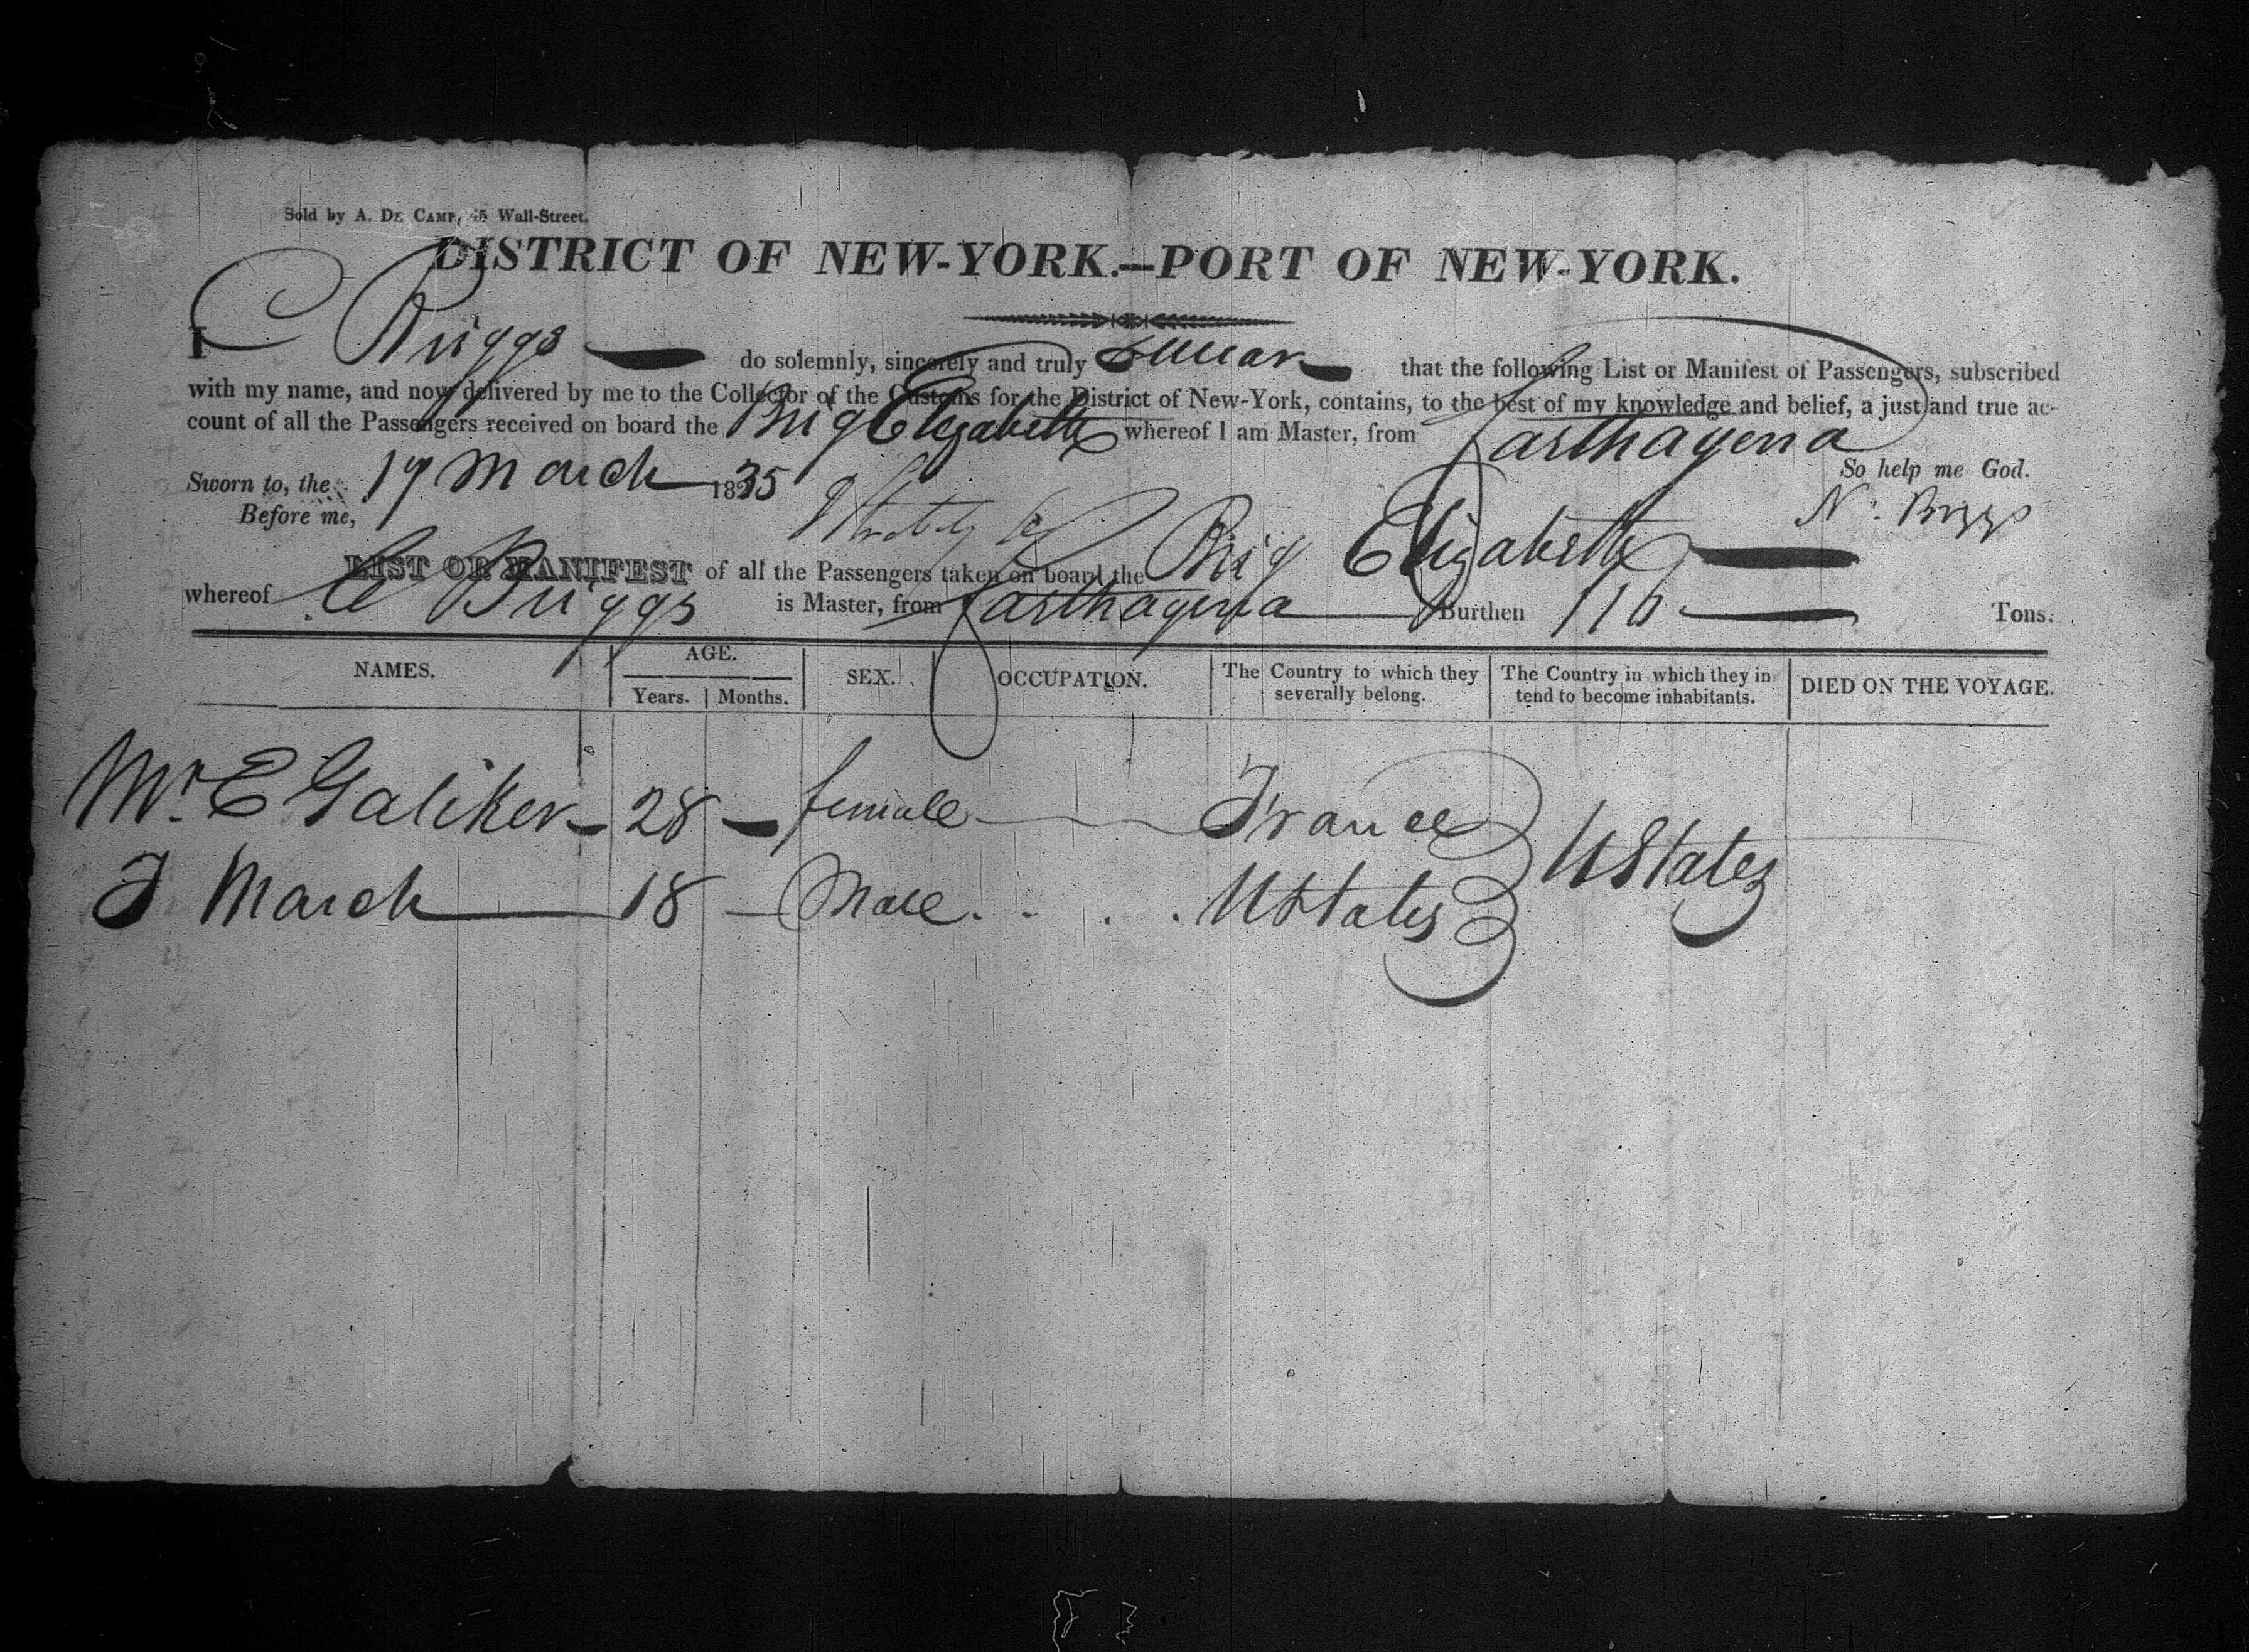 Sold by A. De Camp, 45 Wall-Street.
DISTRICT OF NEW-YORK.—PORT OF NEW-YORK.
I C Briggs do solemnly, sincerely and truly swear that the following List or Manifest of Passengers, subscribed
with my name, and now delivered by me to the Collector of the Customs for the District of New-York, contains, to the best of my knowledge and belief, a just and true ac-
count of all the Passengers received on board the Brig Elizabeth whereof I am Master, from Carthagena
Sworn to, the 17 March 1835 So help me God.
Before me, Briggs
LIST OR MANIFEST of all the Passengers taken on board the Brig Elizabeth
whereof C Briggs is Master, from Carthagena Burthen 116 Tons.
NAMES. AGE. SEX. OCCUPATION. The Country to which they severally belong. The Country in which they in tend to become inhabitants. DIED ON THE VOYAGE.
Years. Months.
Mr E Galiker 28 female France
U States
F March 18 Male U States